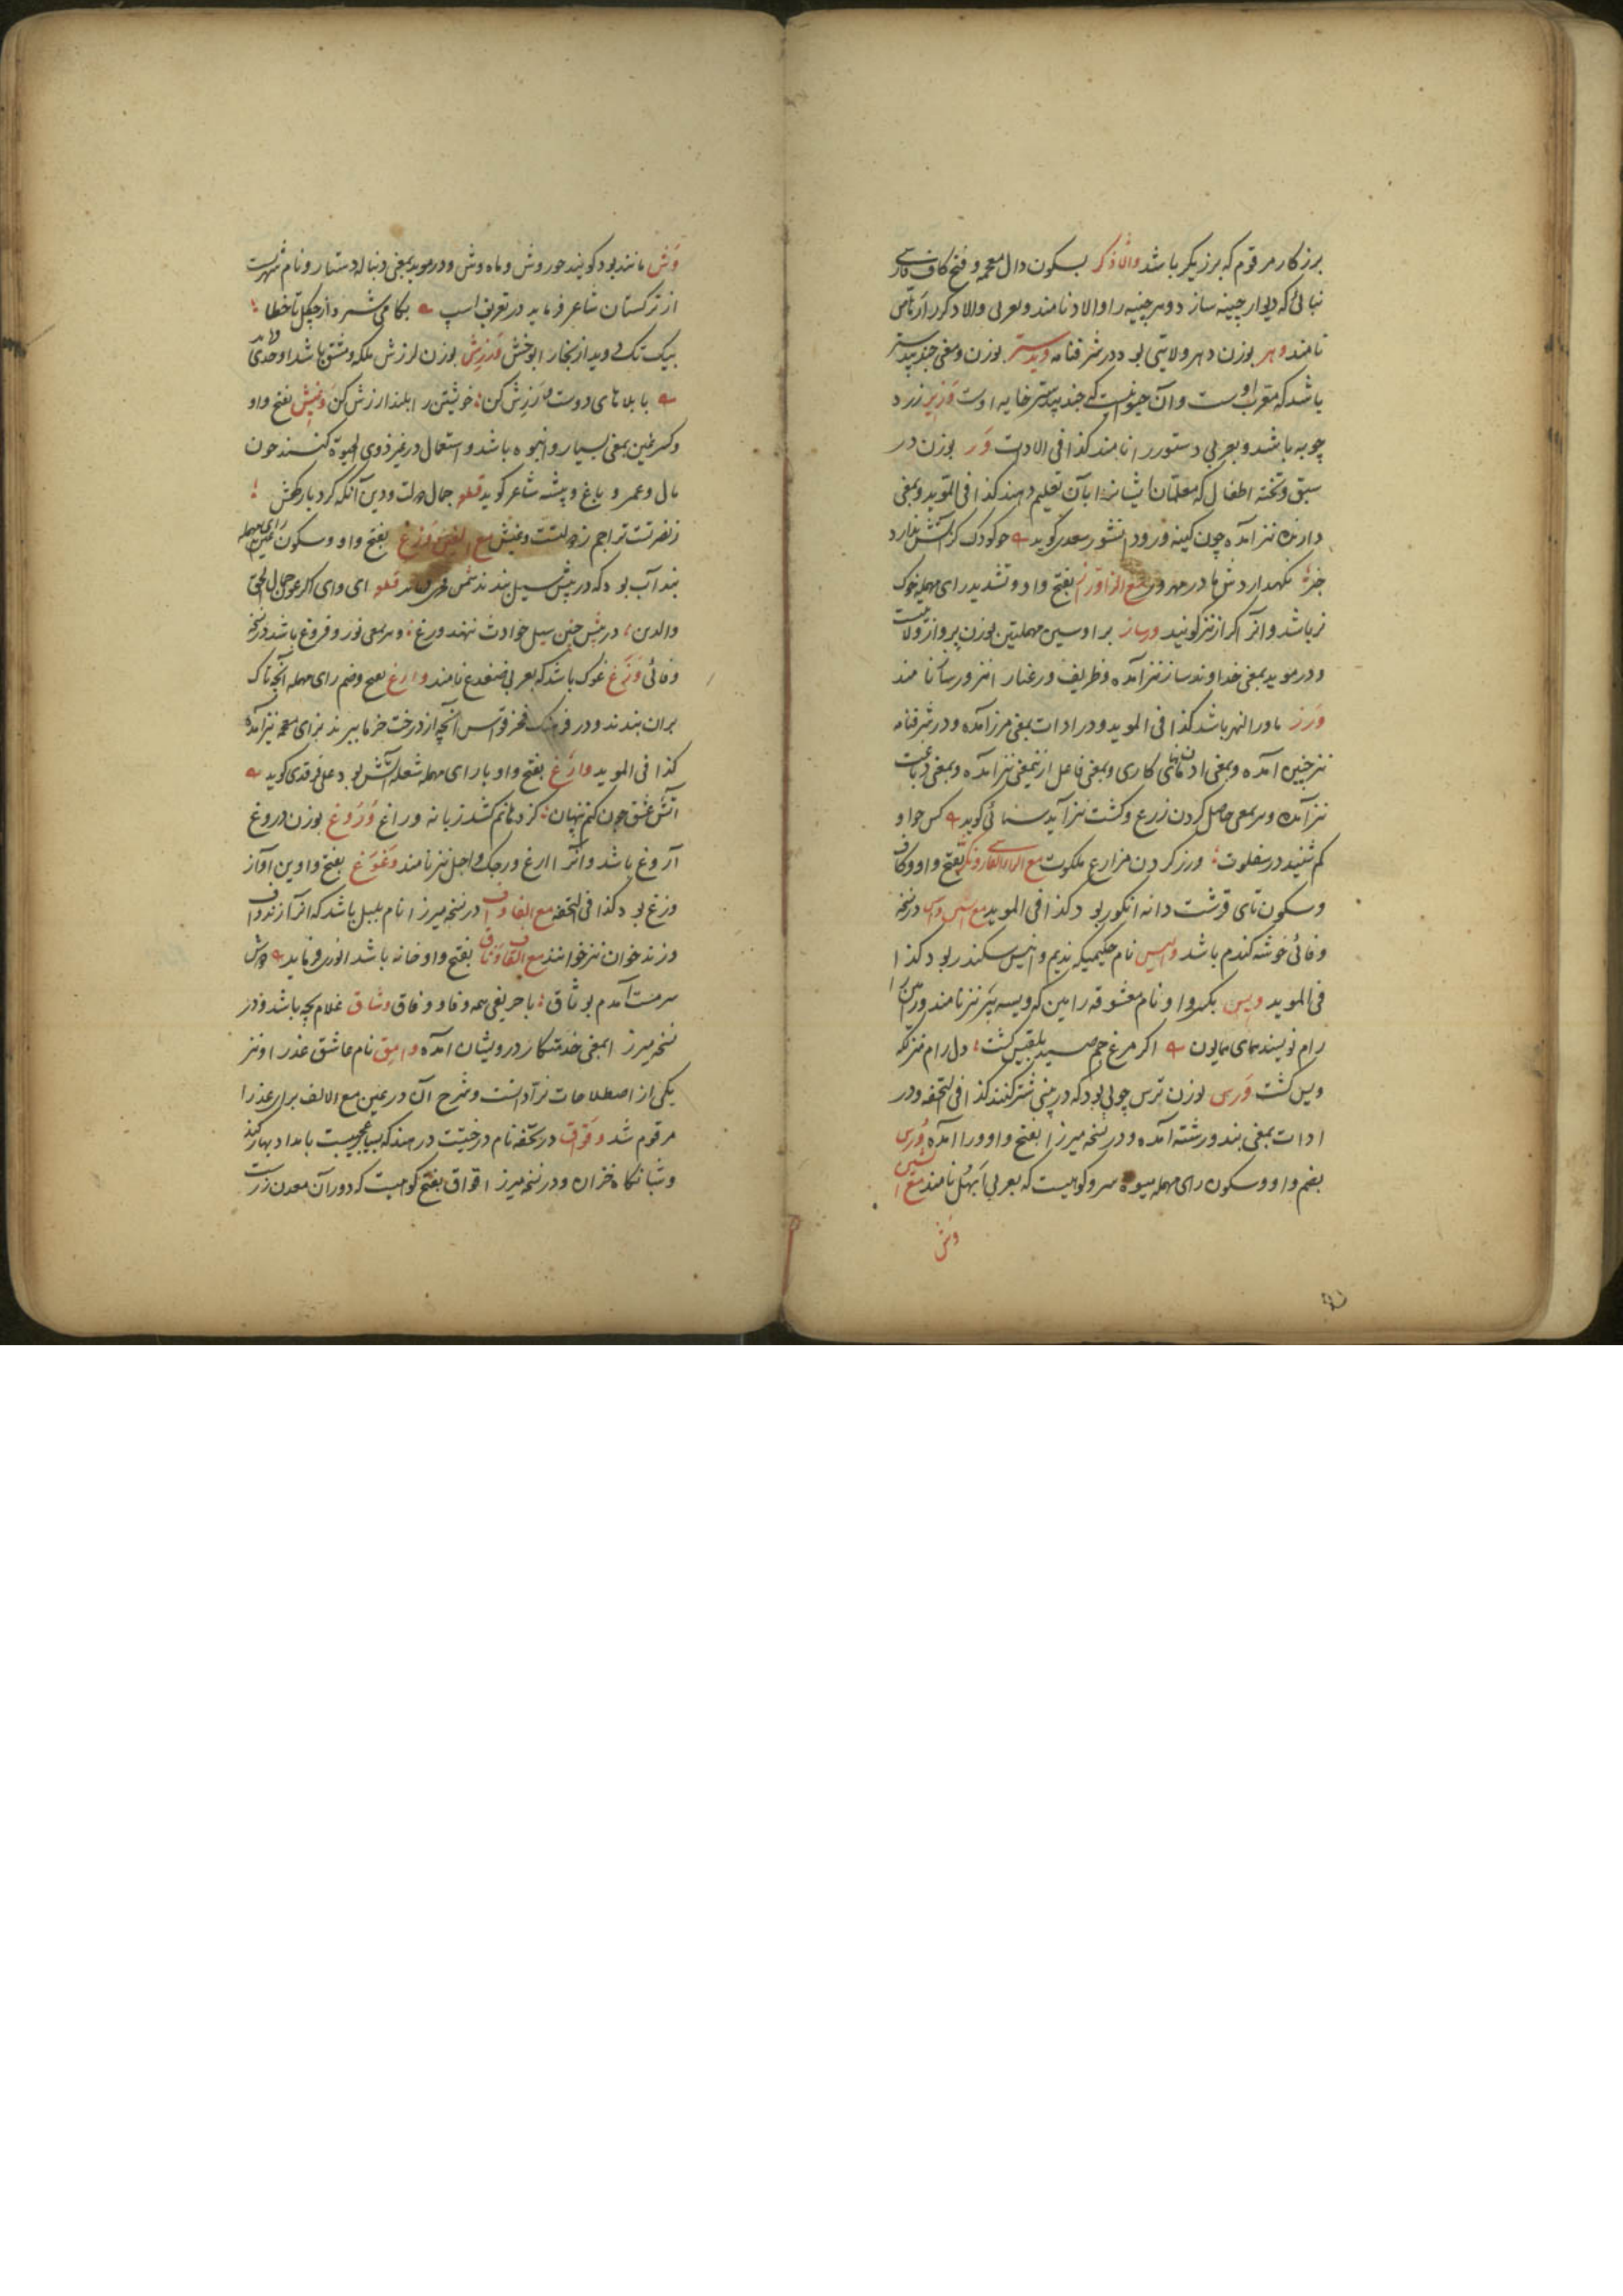 برزکار مرقوم که برزیگر باشد والاذگر بسکون دال معجمه و فتح کاف فارسی
که دیوار چینه سازد و هر چینه را والاد نامند و بعربی
نامند وهر بوزن دهر ولایتی بود در شرفنامه ویدستر بوزن و معنی جندبیدستر
باشد که معرب اوست و آن حیوانیست که جندبیدستر خایه اوست وزیر زرد
چوبه باشد و بعربی دستور را نامند کذا فی الادات ور بوزن در
سبق و تخته اطفال که معلمان ایشانرا بآن تعلیم دهند کذا فی الموید و بمعنی
دارنده نیز آمده چون کینه ور و دانشور سعدی گوید
نگهدارد مادر مهرور مع الزا وراز بفتح واو و تشدید رای مهمله خوک
نر باشد و آنرا گراز نیز گویند ورساز برا و سین مهملتین بوزن پرواز ولایتیست
و در موید بمعنی خداوند ساز نیز آمده و ظریف و رعنا را نیز ورساز نامند
ورز ماورا النهر باشد کذا فی الموید و در ادات بمعنی مرز آمده و در شرفنامه
نیز چنین آمده و بمعنی کاری و بمعنی فاعل ازین معنی نیز آمده و بمعنی دباغت
نیز آمده و بمعنی حاصل کردن زرع و کشت نیز آید سنائی گوید کس چو او
کم شنید در ملکوت ورز کردن مزارع ملکوت مع الزاء الفارسی بفتح واو و کاف
و سکون تای قرشت دانه انگور بود کذا فی الموید مع السین واس در نسخه
وفائی خوشه گندم باشد والیس نام حکیمیکه ندیم و انیس سکندر بود کذا
فی الموید ویس بکسر واو نام معشوقه رامین که ویسه نیز نامند و رامین را
رام نویسند همای همایون اگر مرغ جم بلقیس گشت دل رام
ویس گشت ورس بوزن ترس چوبی بود که در بینی شتر کنند کذا فی التحفه و در
ادات بمعنی بند و رشته آمده و در نسخه میرزا بفتح واو و را آمده ورس
بضم واو و سکون رای مهمله میوه سرو کوهیست که بعربی ابهل نامند مع الشین
وش
وش مانند بود گویند حوروش و ماه وش و در موید بمعنی دنباله دستار و نام شهریست
از ترکستان شاعر فرماید در تعریف اسپ بگامی شمرد از چگل تا خطا
بیک تک دوید از بخارا بوخش ورزش بوزن لرزش ملکه و مشق باشد اوحدی
با بلاهای دوست ورزش کن خویشتن را بلند ارزش کن ونیش بفتح واو
و کسر بمعنی بسیار و انبوه باشد و استعمال در غیر ذوی الحیوة کنند چون
مال و عمر و باغ و بیشه شاعر گوید قطعه جمال دولت و دین آنکه کردبار کفش
مع الغین ورغ بفتح واو و سکون رای مهمله
بند آب بود که در پیش سیل بندند شمس فخری فرماید قطعه ای وای اگر عون جمال الحق
والدین در پیش چنین سیل حوادث ننهد ورغ و بمعنی نور و فروغ باشد در نسخه
وفائی وزغ غوک باشد که بعربی ضفدع نامند وارغ بفتح و ضم رای مهمله آنچه تاک
بران بندند و در فرهنگ فخر قواس آنچه از درخت خرما ببرند بزای معجمه نیز آمده
کذا فی الموید وارغ بفتح واو با رای مهمله شعله آتش بود علی فرقدی گوید
آتش عشق چون کنم پنهان کز دهانم کشد زبانه وراغ وروغ بوزن دروغ
آروغ باشد و آنرا آرغ و رجک و اجل نیز نامند وغوغ بفتح واوین آواز
وزغ بود کذا فی التحفه مع الفا واف در نسخه میرزا نام بلبل باشد که آنرا زندواف
و زندخوان نیز خوانند مع القاف وثاق بفتح واو خانه باشد انوری فرماید دوش
سرمست آمدم بوثاق با حریفی همه وفا و وفاق وشاق غلام بچه باشد و در
نسخه میرزا بمعنی خدمتکار درویشان آمده وامق نام عاشق عذرا و نیز
یکی از اصطلاحات نرّادانست و شرح آن در عین مع الالف برای عذرا
مرقوم شد وقواق در تحفه نام درختیست در هند که بسیار عجیبست بامداد بهار کند
و شبانگاه خزان و در نسخه میرزا وقواق بفتح کوهیست که در آن معدن زرست